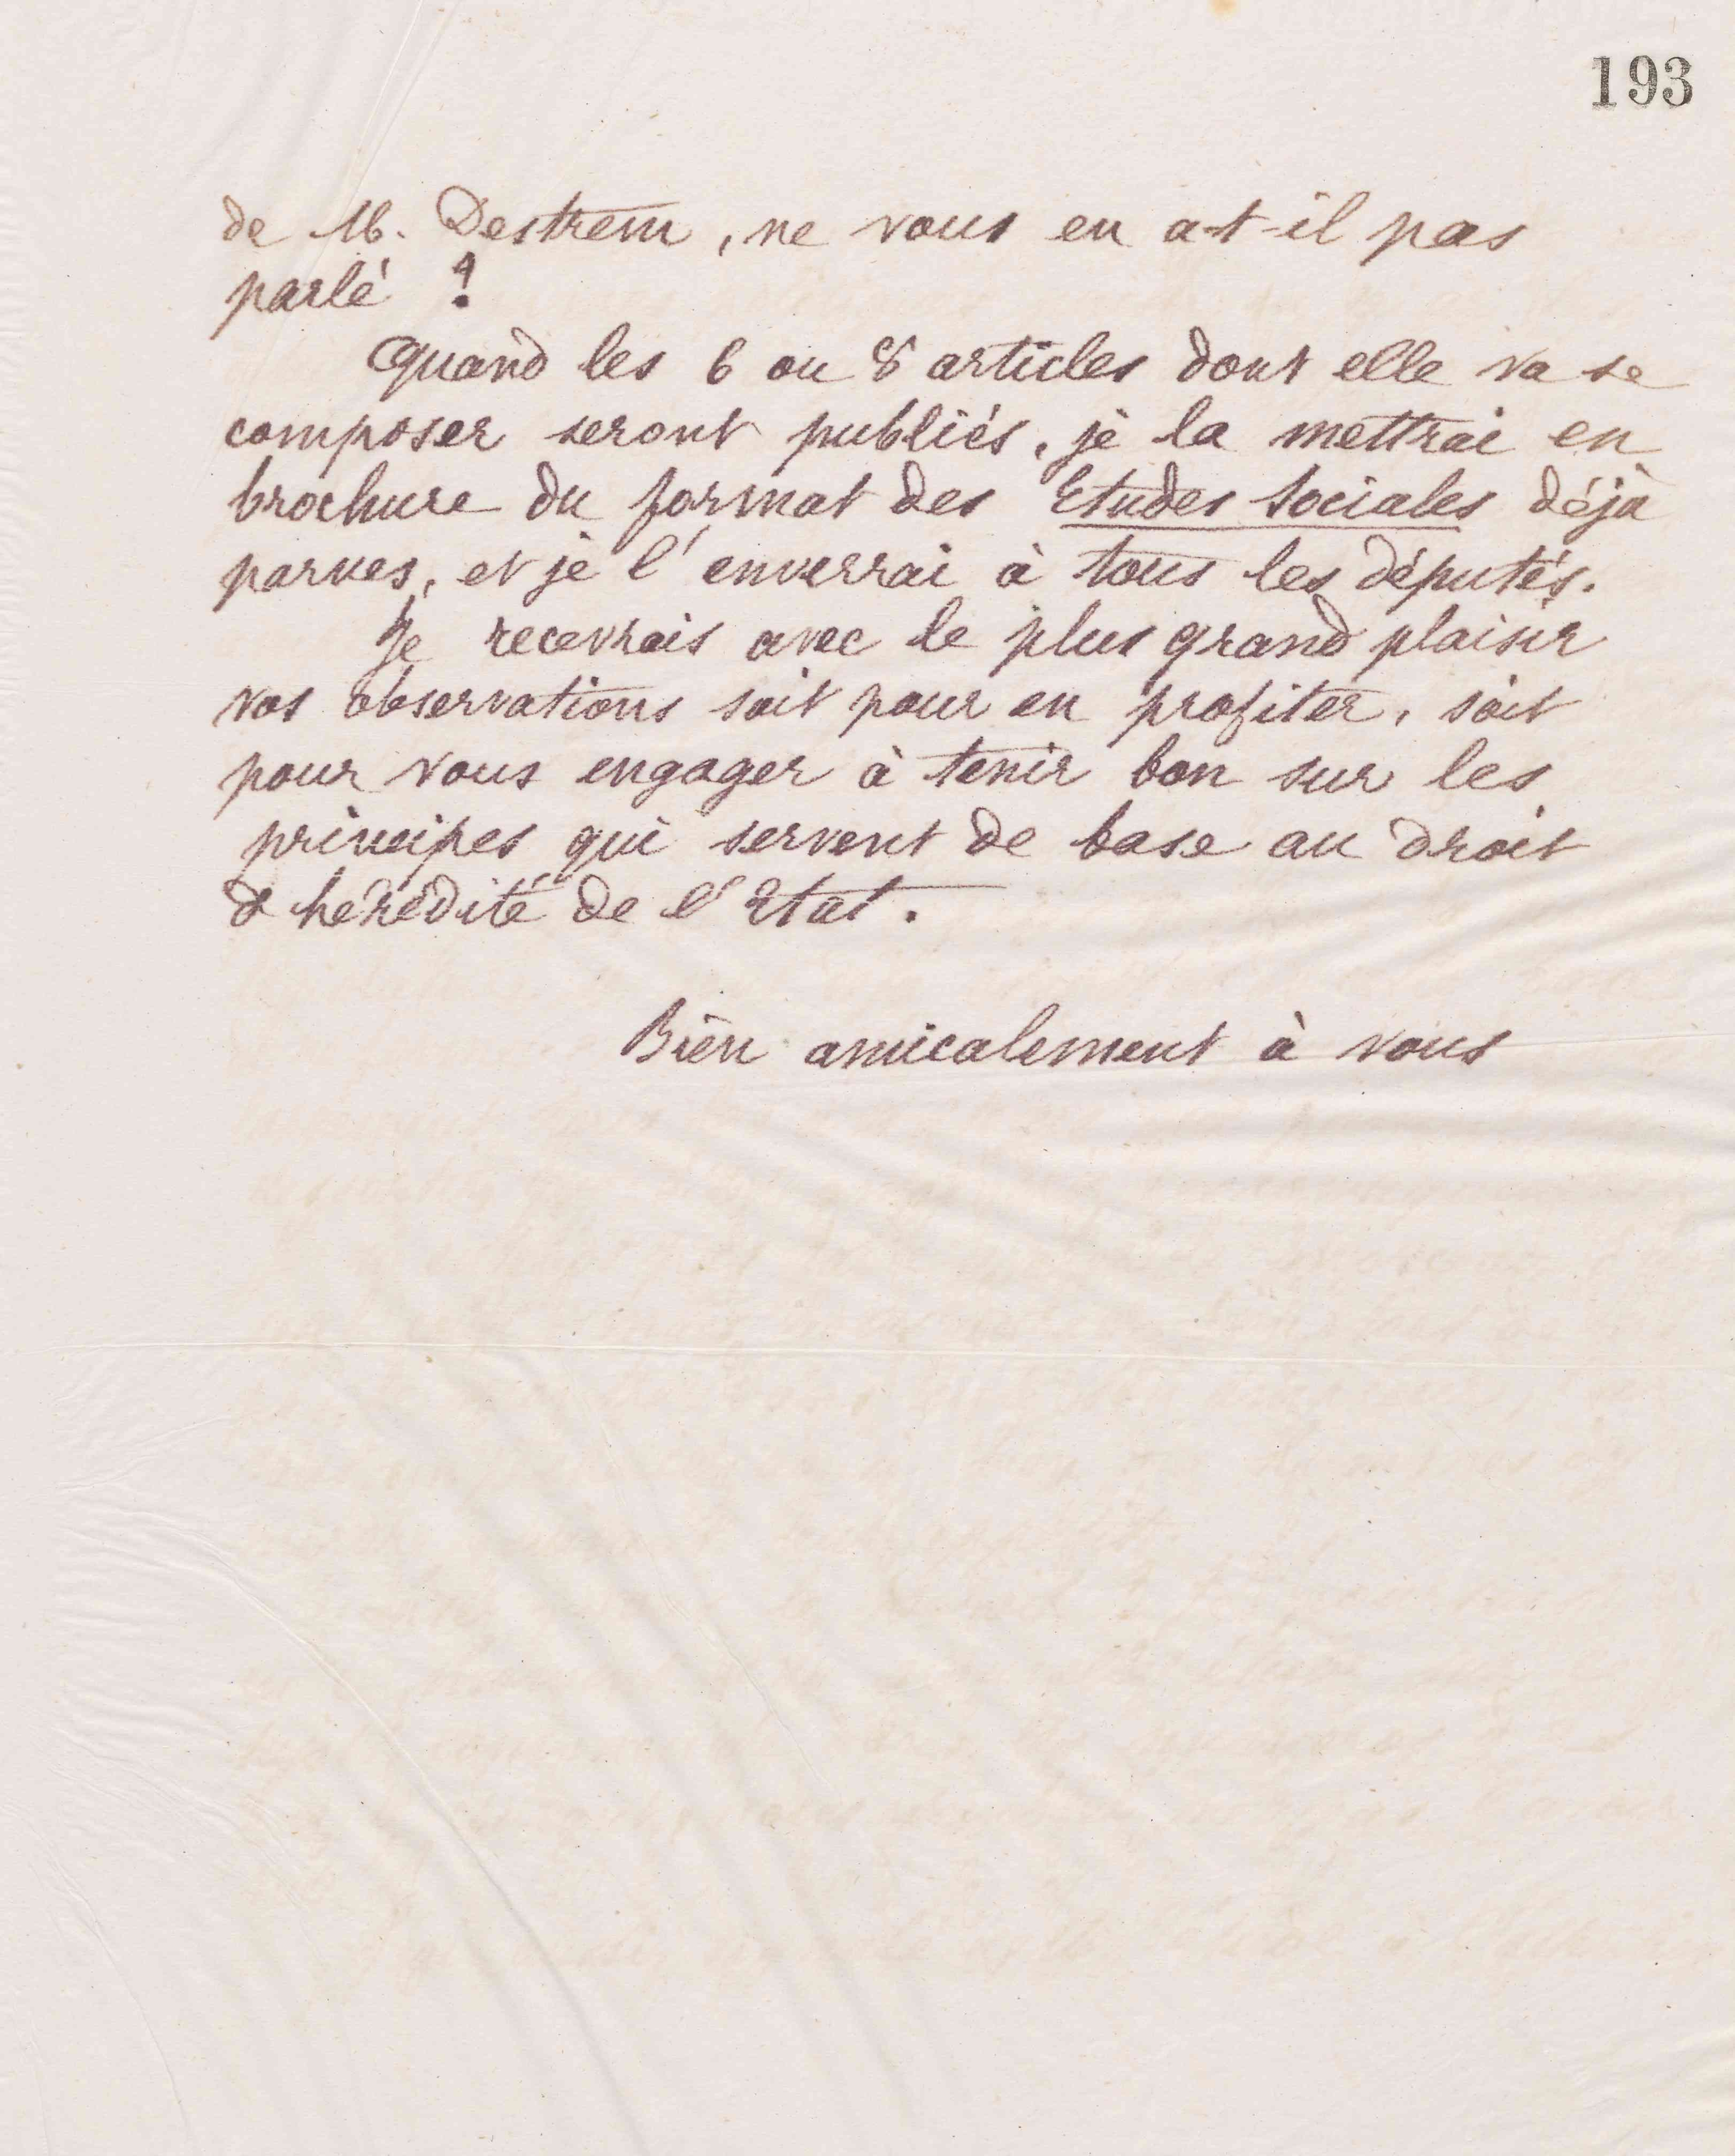 193
de M. Destrem, ne vous en a-t-il pas
parlé ?
Quand les 6 ou 8 articles dont elle va se
composer seront publiés, je la mettrai en
brochure du format des Etudes Sociales déjà
parues, et je l'enverrai à tous les députés.
Je recevrais avec le plus grand plaisir
vos observations soit pour en profiter, soit
pour vous engager à tenir bon sur les
principes qui servent de base au droit
d'hérédité de l'Etat.
Bien amicalement à vous